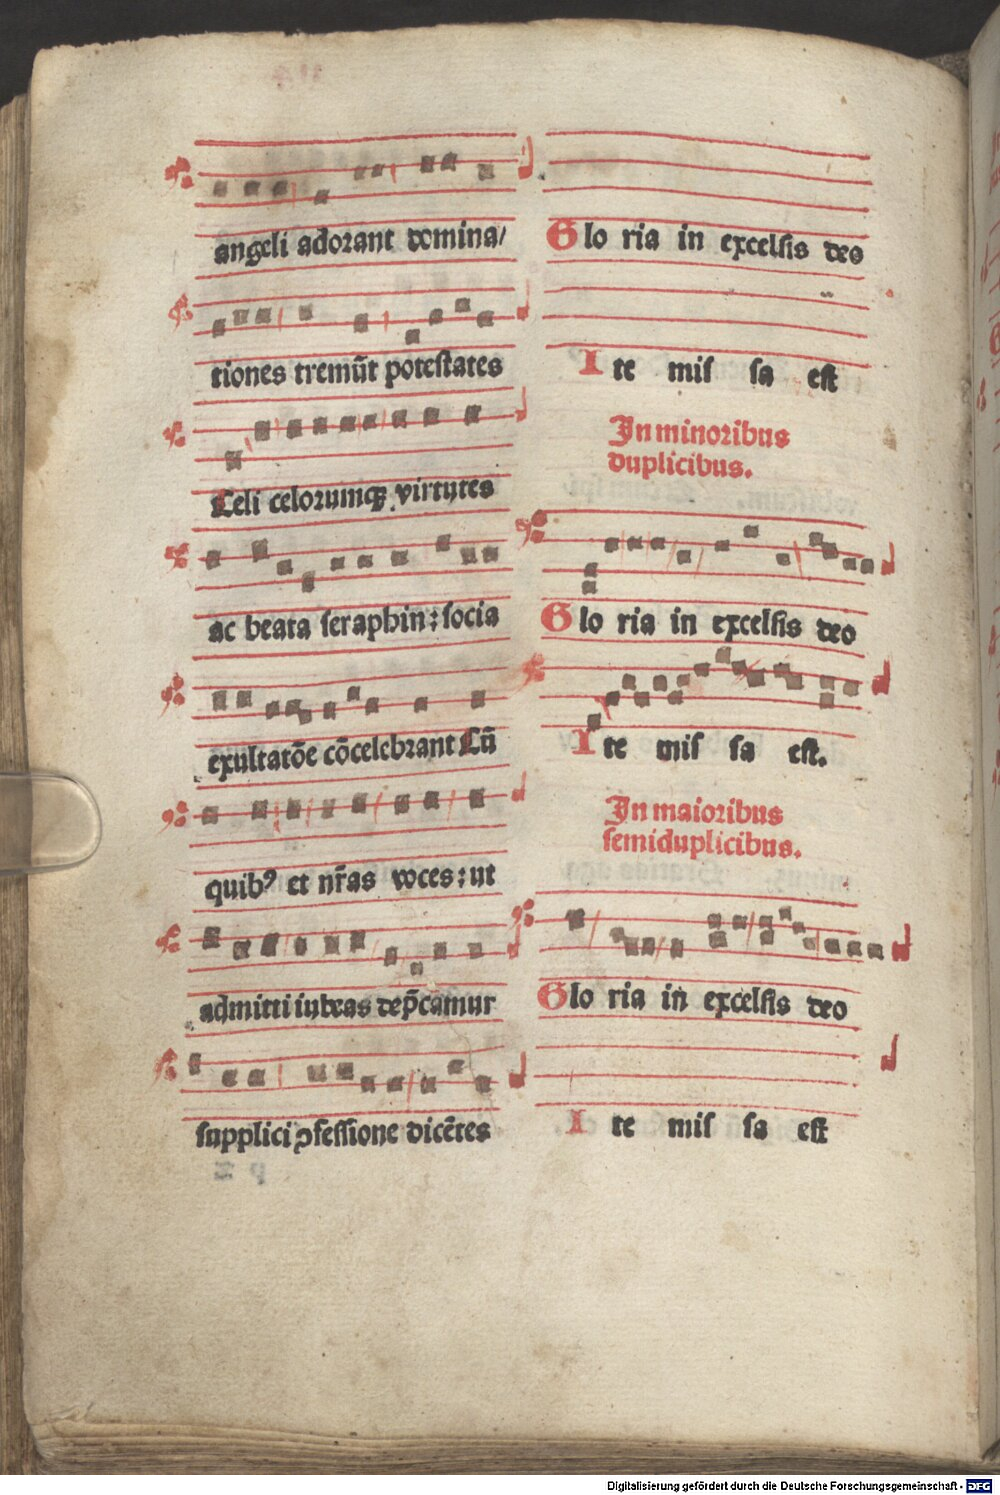 angeli adorant domina/
tiones tremūt potestates
Celi celorumqꝫ virtutes
ac beata seraphin: socia
exultatōe cōcelebrant Cū
quibꝰ et nr̄as voces: ut
admitti iubeas dep̄camur
supplici ꝯfessione dicētes
Glo ria in excelsis deo
Ite mis sa est
In minoribus
duplicibus.
Glo ria in excelsis deo
Ite mis sa est.
In maioribus
semiduplicibus.
Glo ria in excelsis deo
Ite mis sa est
Digitalisierung gefördert durch die Deutsche Forschungsgemeinschaft - DFG